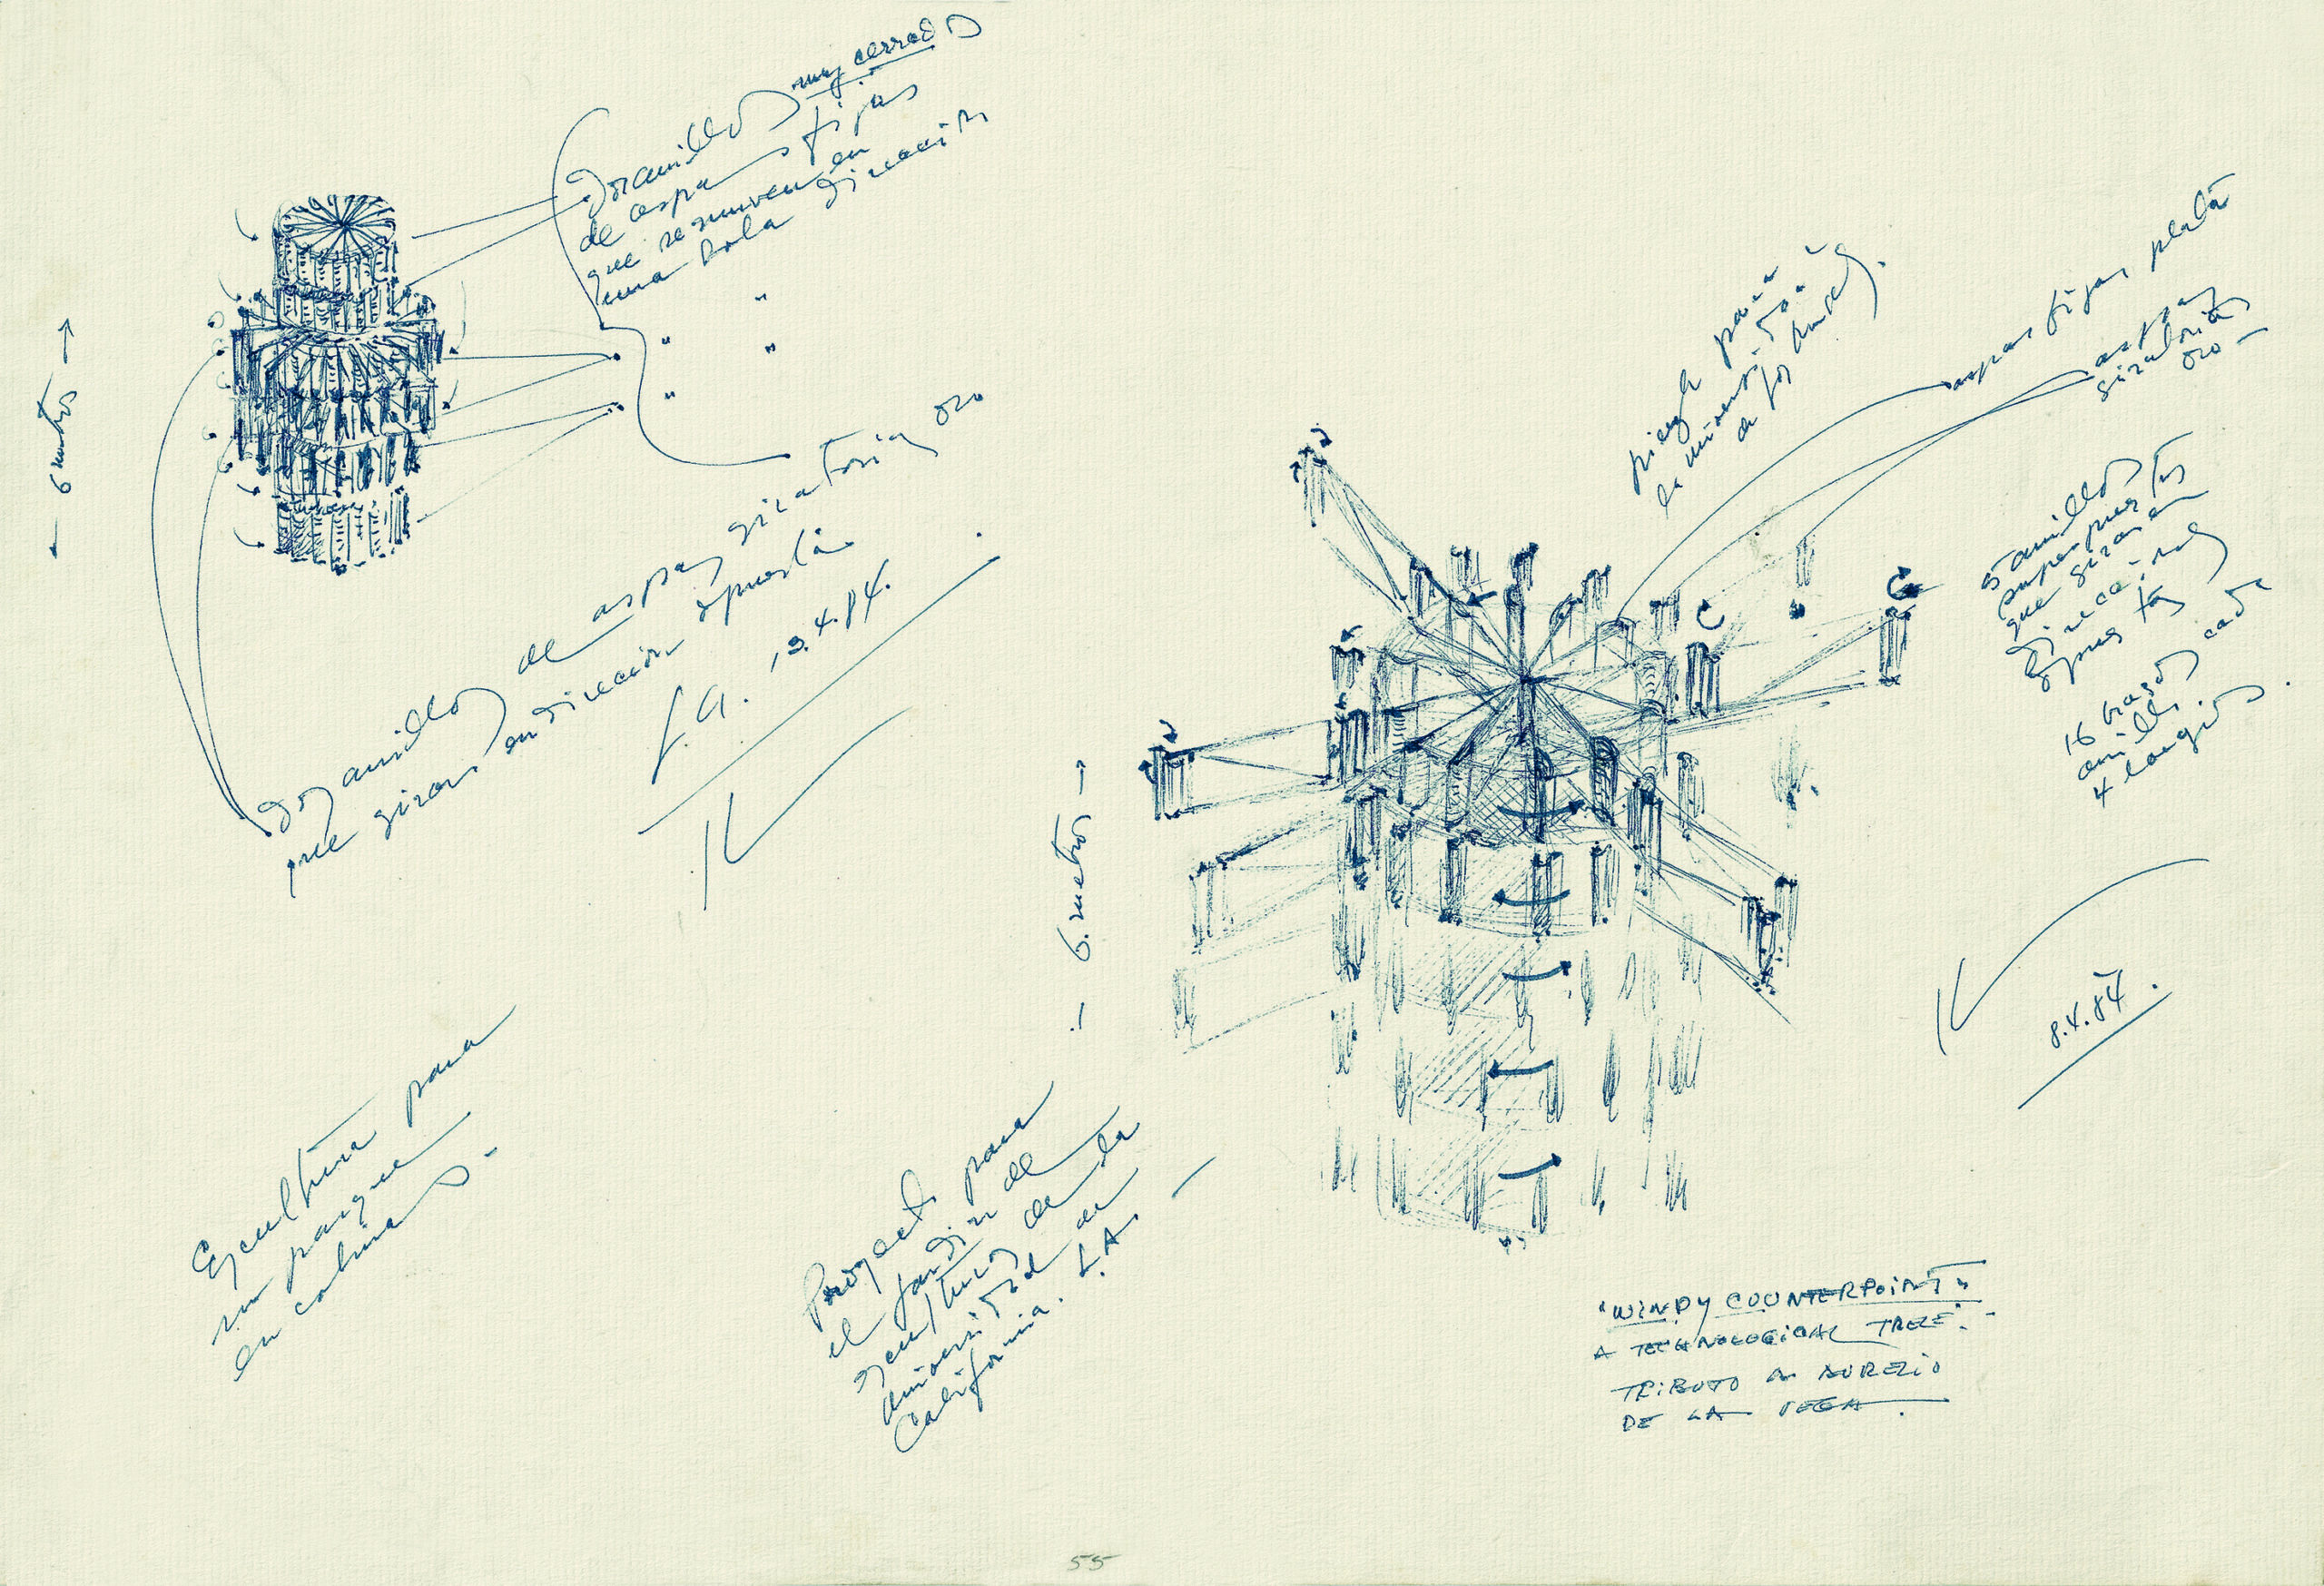 Dos anillos muy cerrados
de aspas fijas
que se mueven en
una sola dirección
" "
" "
"
← 6 metros →
Dos anillos de aspas giratorias oro
que giran en dirección opuesta
L.A. 13.4.84.
Escultura para
un parque
en columnas.
← 6. metros →
Proyecto para
el jardín de
esculturas de la
universidad de
California. L.A.
para
la universidad
aspas fijas plata
aspas
giratorias
oro
5 anillos
superpuestos
que giran en
direcciones
opuestas
16 brazos cada
anillo
4 largos.
8.4.84.
"WINDY COUNTERPOINT"
A TECHNOLOGICAL TREE".
TRIBUTO A AURELIO
DE LA VEGA.
55